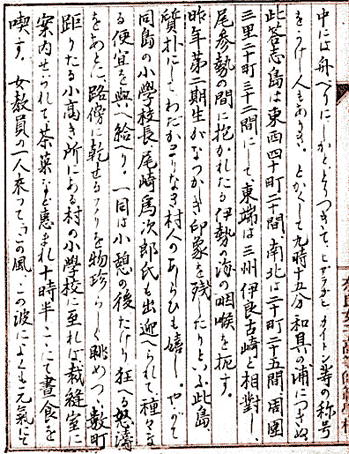 中には舟べりにしかととりつきて、ヒヤラズ、カイトン等の称号
をうけし人もありき。とかくして九時十五分和具の浦につきぬ
此答志島は東西四十町二十間、南北は二十町二十五間、周囲
三里二十町三十二間にして東端は三州伊良古崎と相對し、
尾参勢の間に抱かれたる伊勢の海の咽喉を扼す。
昨年第二期生がなつかしき印象を残したりといふ此島
質朴にしてわだかまりなき村人のあしらひも嬉し。やがて
同島の小學校長尾崎馬次郎氏も出迎へられて種々な
る便宜を與へ給へり。一同は小憩の後たけり狂へる怒濤
をあとに、路傍に乾せるフノリを物珍らしく眺めつゝ數町
距りたる小高き所にある村の小學校に至れば裁縫室に
案内せられて茶菓など恵まれ十時半こゝにて晝食を
喫す。女教員の一人来つてこの風、この波によくも元氣にて